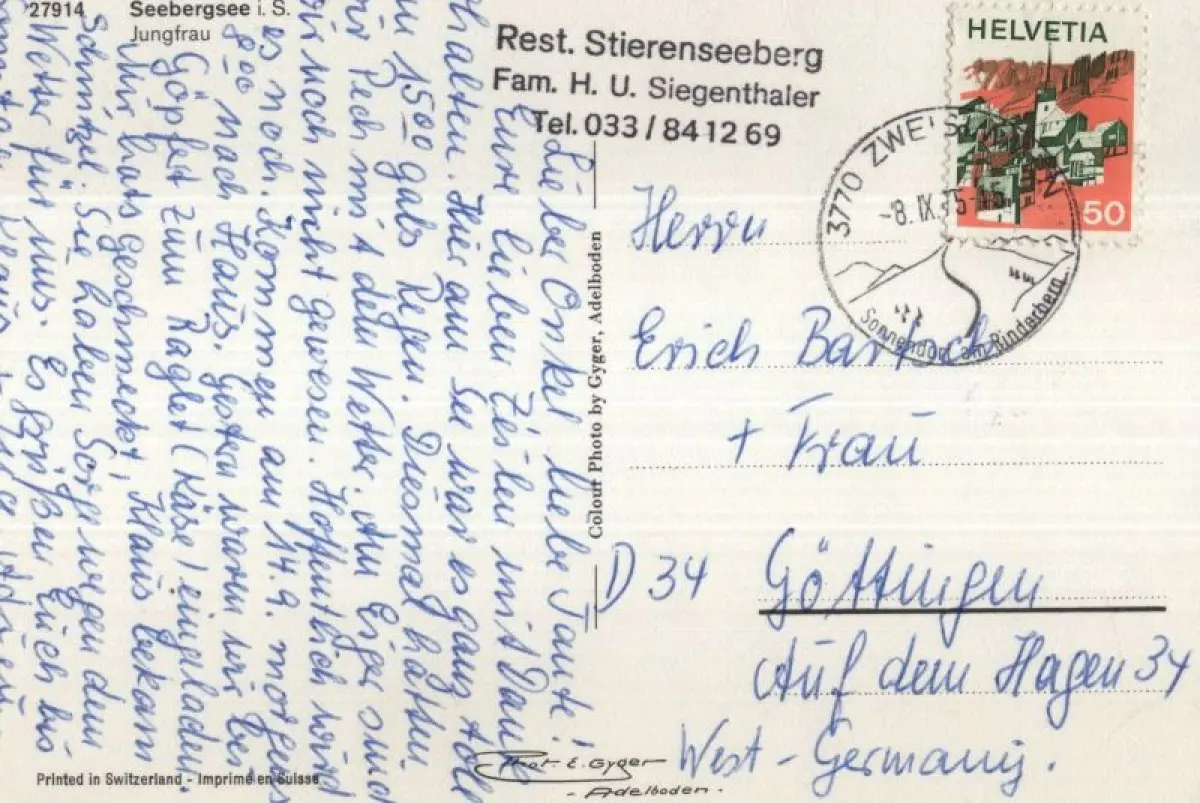 27914 Seebergsee i. S.
Jungfrau
Rest. Stierenseeberg
Fam. H. U. Siegenthaler
Tel. 033 / 84 12 69
HELVETIA
50
3770 ZWEISIMMEN
-8.IX.75-
Sonnendorf am Rinderberg
Lieber Onkel liebe Tante!
Eure lieben Zeilen mit Dank
erhalten. Hier am See war es ganz toll
um 1500 gabs Regen. Diesmal hatten
wir Pech mit dem Wetter. Am Eiger sind
wir noch nicht gewesen. Hoffentlich wird
es noch. Kommen am 14.9. morgens
8 00 nach Haus. Gestern waren wir bei
Göpfert zum Raglet (Käse) eingeladen.
Mir hats geschmeckt, Klaus bekam
Schnitzel. Sie haben Sorge wegen dem
Wetter für uns. Es grüßen Euch bis
Colour Photo by Gyger, Adelboden
Herrn
Erich Bartsch
+ Frau
D 34 Göttingen
Auf dem Hagen 34
West-Germany.
Phot. E. Gyger
- Adelboden -
Printed in Switzerland - Imprimé en Suisse